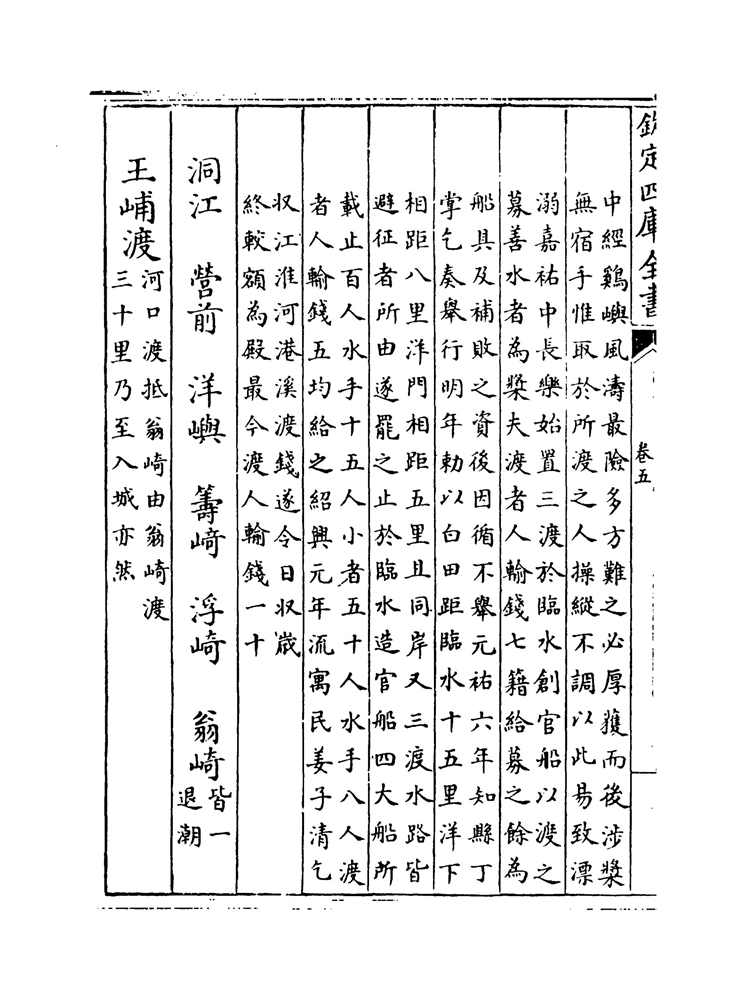 欽定四庫全書
卷五
中經鷄嶼風濤最險多方難之必厚獲而後涉槳
無宿手惟取於所渡之人操縱不調以此易致漂
溺嘉祐中長樂始置三渡於臨水創官船以渡之
募善水者為槳夫渡者人輸錢七籍給募之餘為
船具及補敗之資後因循不舉元祐六年知縣丁
掌乞奏舉行明年勅以白田距臨水十五里洋下
相距八里洋門相距五里且同岸又三渡水路皆
避征者所由遂罷之止於臨水造官船四大船所
載止百人水手十五人小者五十人水手八人渡
者人輸錢五均給之紹興元年流寓民姜子清乞
収江淮河港溪渡錢遂令日収嵗
終較額為殿最今渡人輸錢一十
洞江 營前 洋嶼 籌﨑 浮崎 翁崎皆一
退潮
王峬渡河口渡抵翁崎由翁崎渡
三十里乃至入城亦然